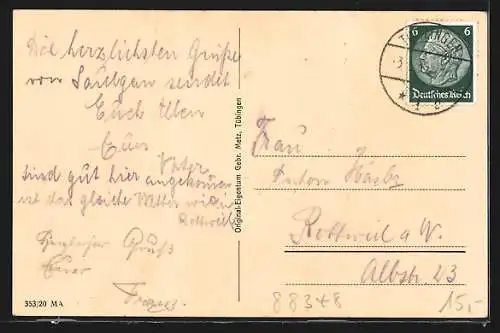 Die herzlichsten Grüße
von Saulgau sendet
Euch Allen
Euer
Vater
sind gut hier angekommen
ist das gleiche Wetter wie in
Rottweil
Herzlicher Gruß
Euer
Franz
353/20 MA
Original-Eigentum Gebr. Metz, Tübingen
6 6
Deutsches Reich
Frau
Anton
Rottweil a N.
Albstr. 23
88348
15,-